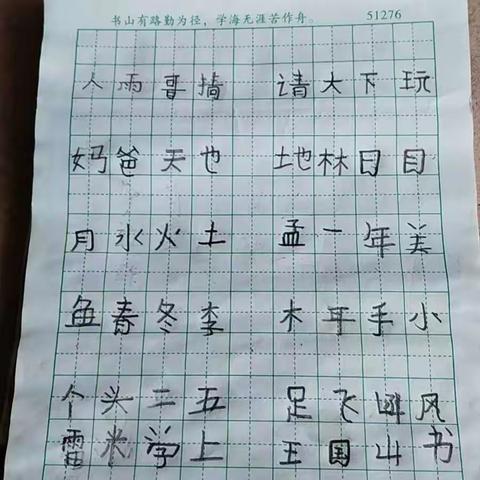 书山有路勤为径，学海无涯苦作舟。 51276
人雨哥墙 请大下玩
妈爸天也 地林日目
月水火土 孟一年美
鱼春冬李 木耳手小
个头二五 足飞风
雷米学上 王国山书